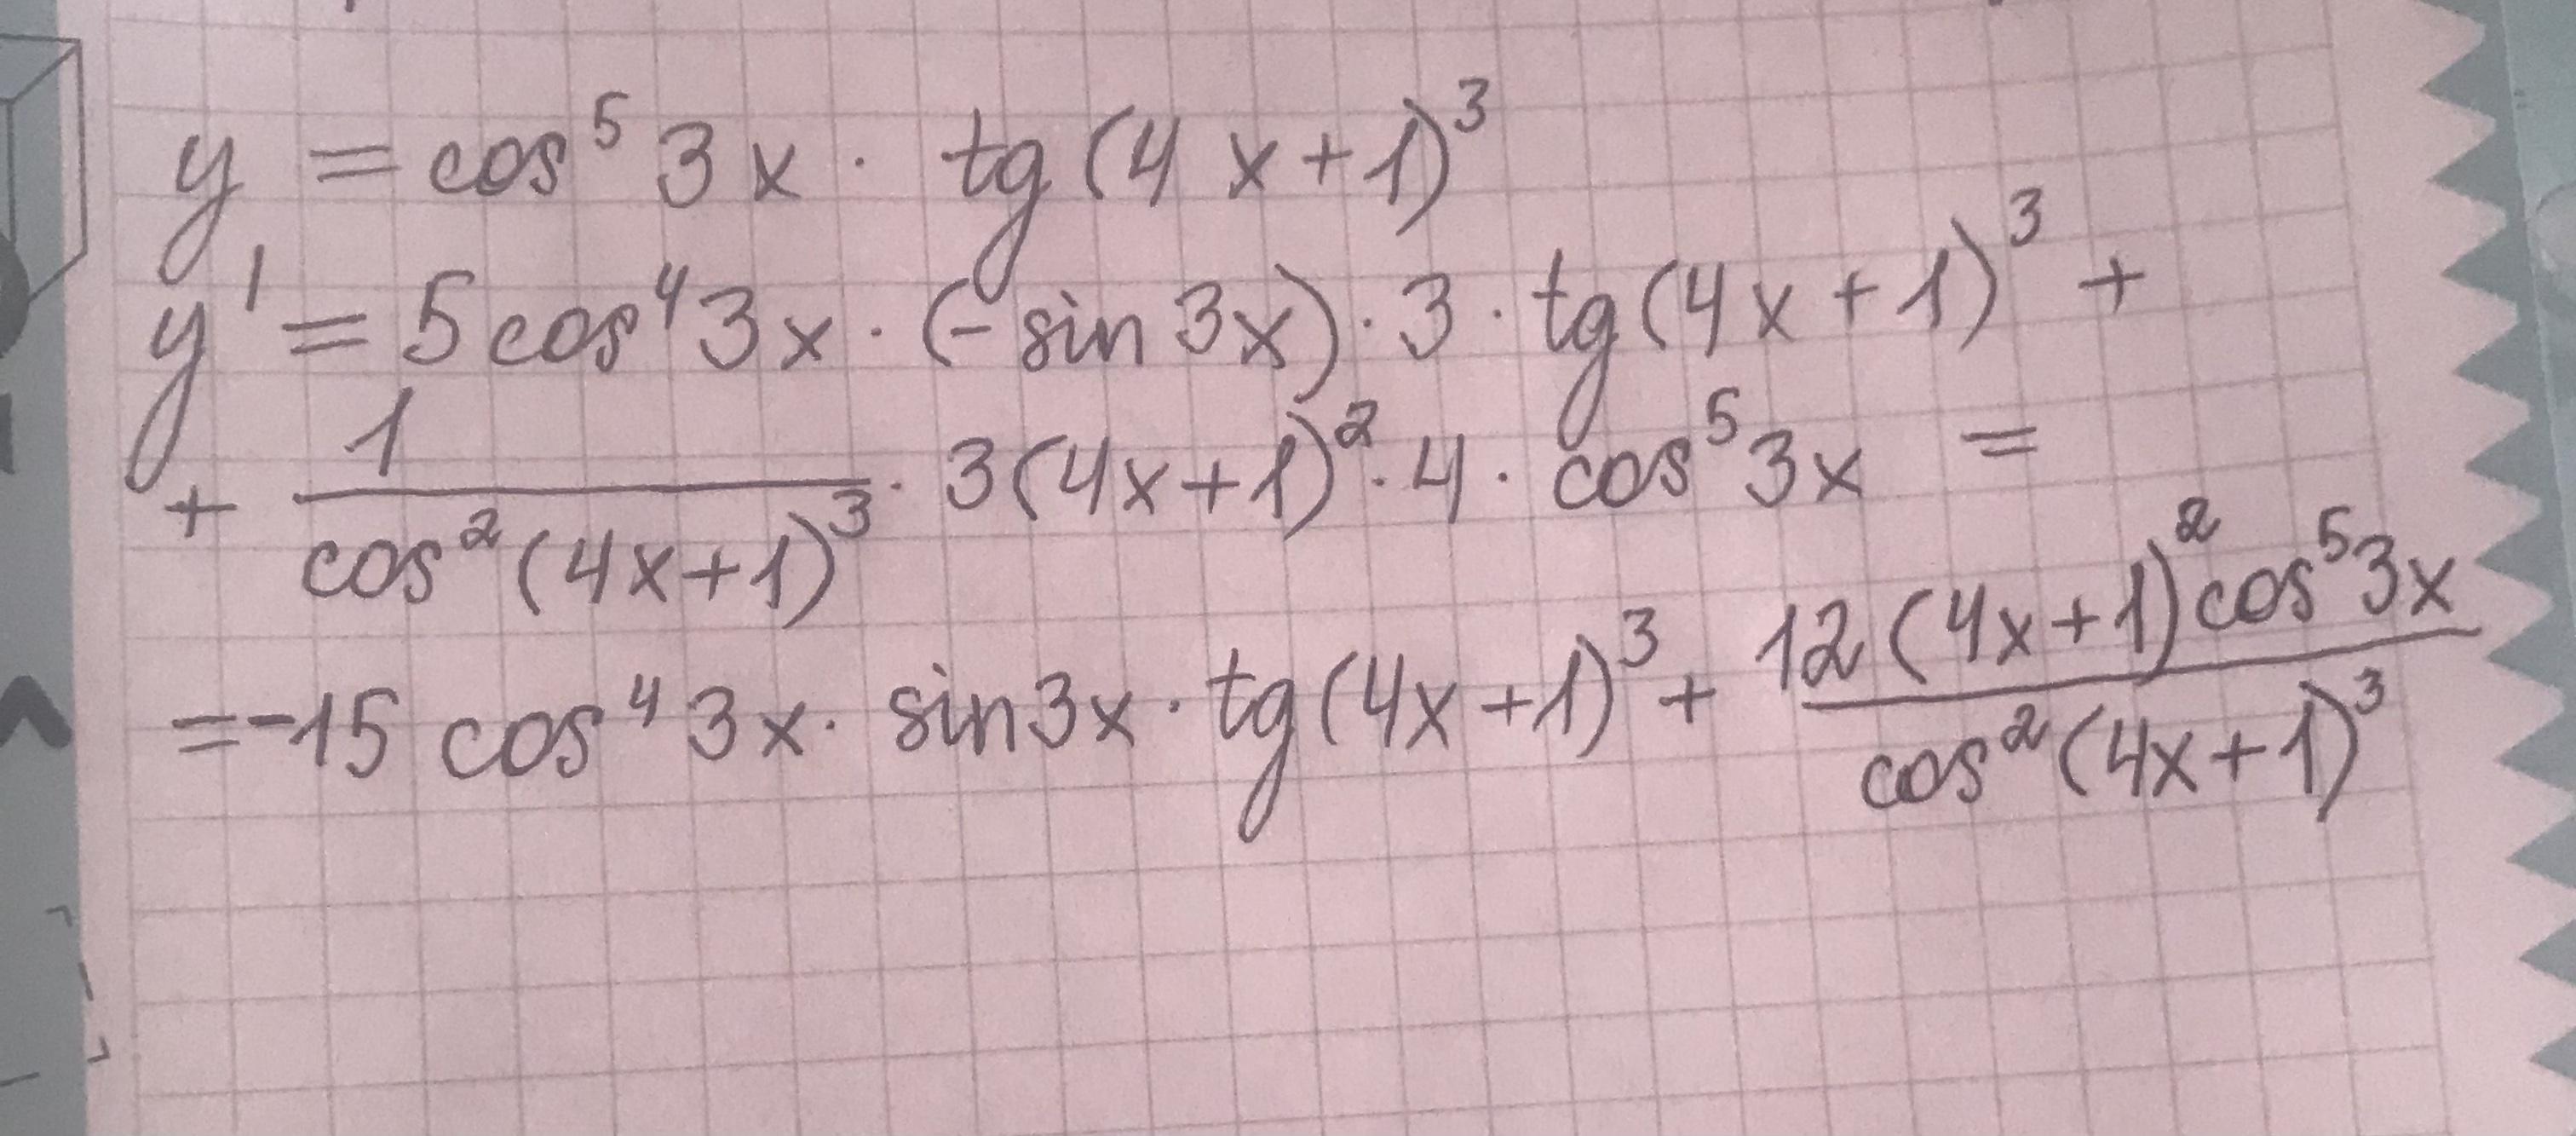 y = cos⁵ 3x · tg (4x+1)³
y' = 5 cos⁴ 3x · (- sin 3x) · 3 · tg (4x+1)³ +
+ 1/(cos² (4x+1)³) · 3(4x+1)² · 4 · cos⁵ 3x =
= -15 cos⁴ 3x · sin 3x · tg (4x+1)³ + (12 (4x+1)² cos⁵ 3x)/(cos² (4x+1)³)